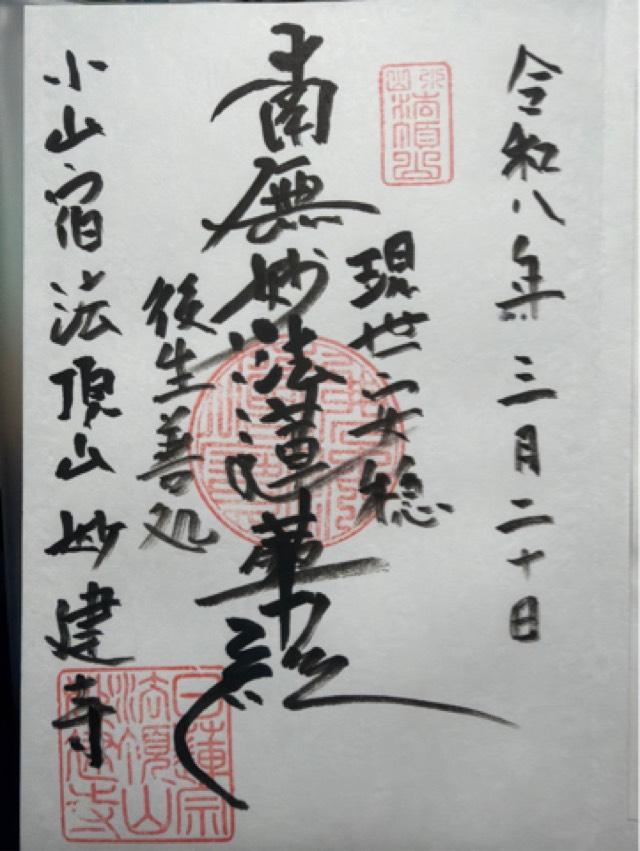 令和八年三月二十日
現世安穏
南無妙法蓮華経
後生善処
小山宿法頂山妙建寺
日蓮宗
法頂山
妙建寺